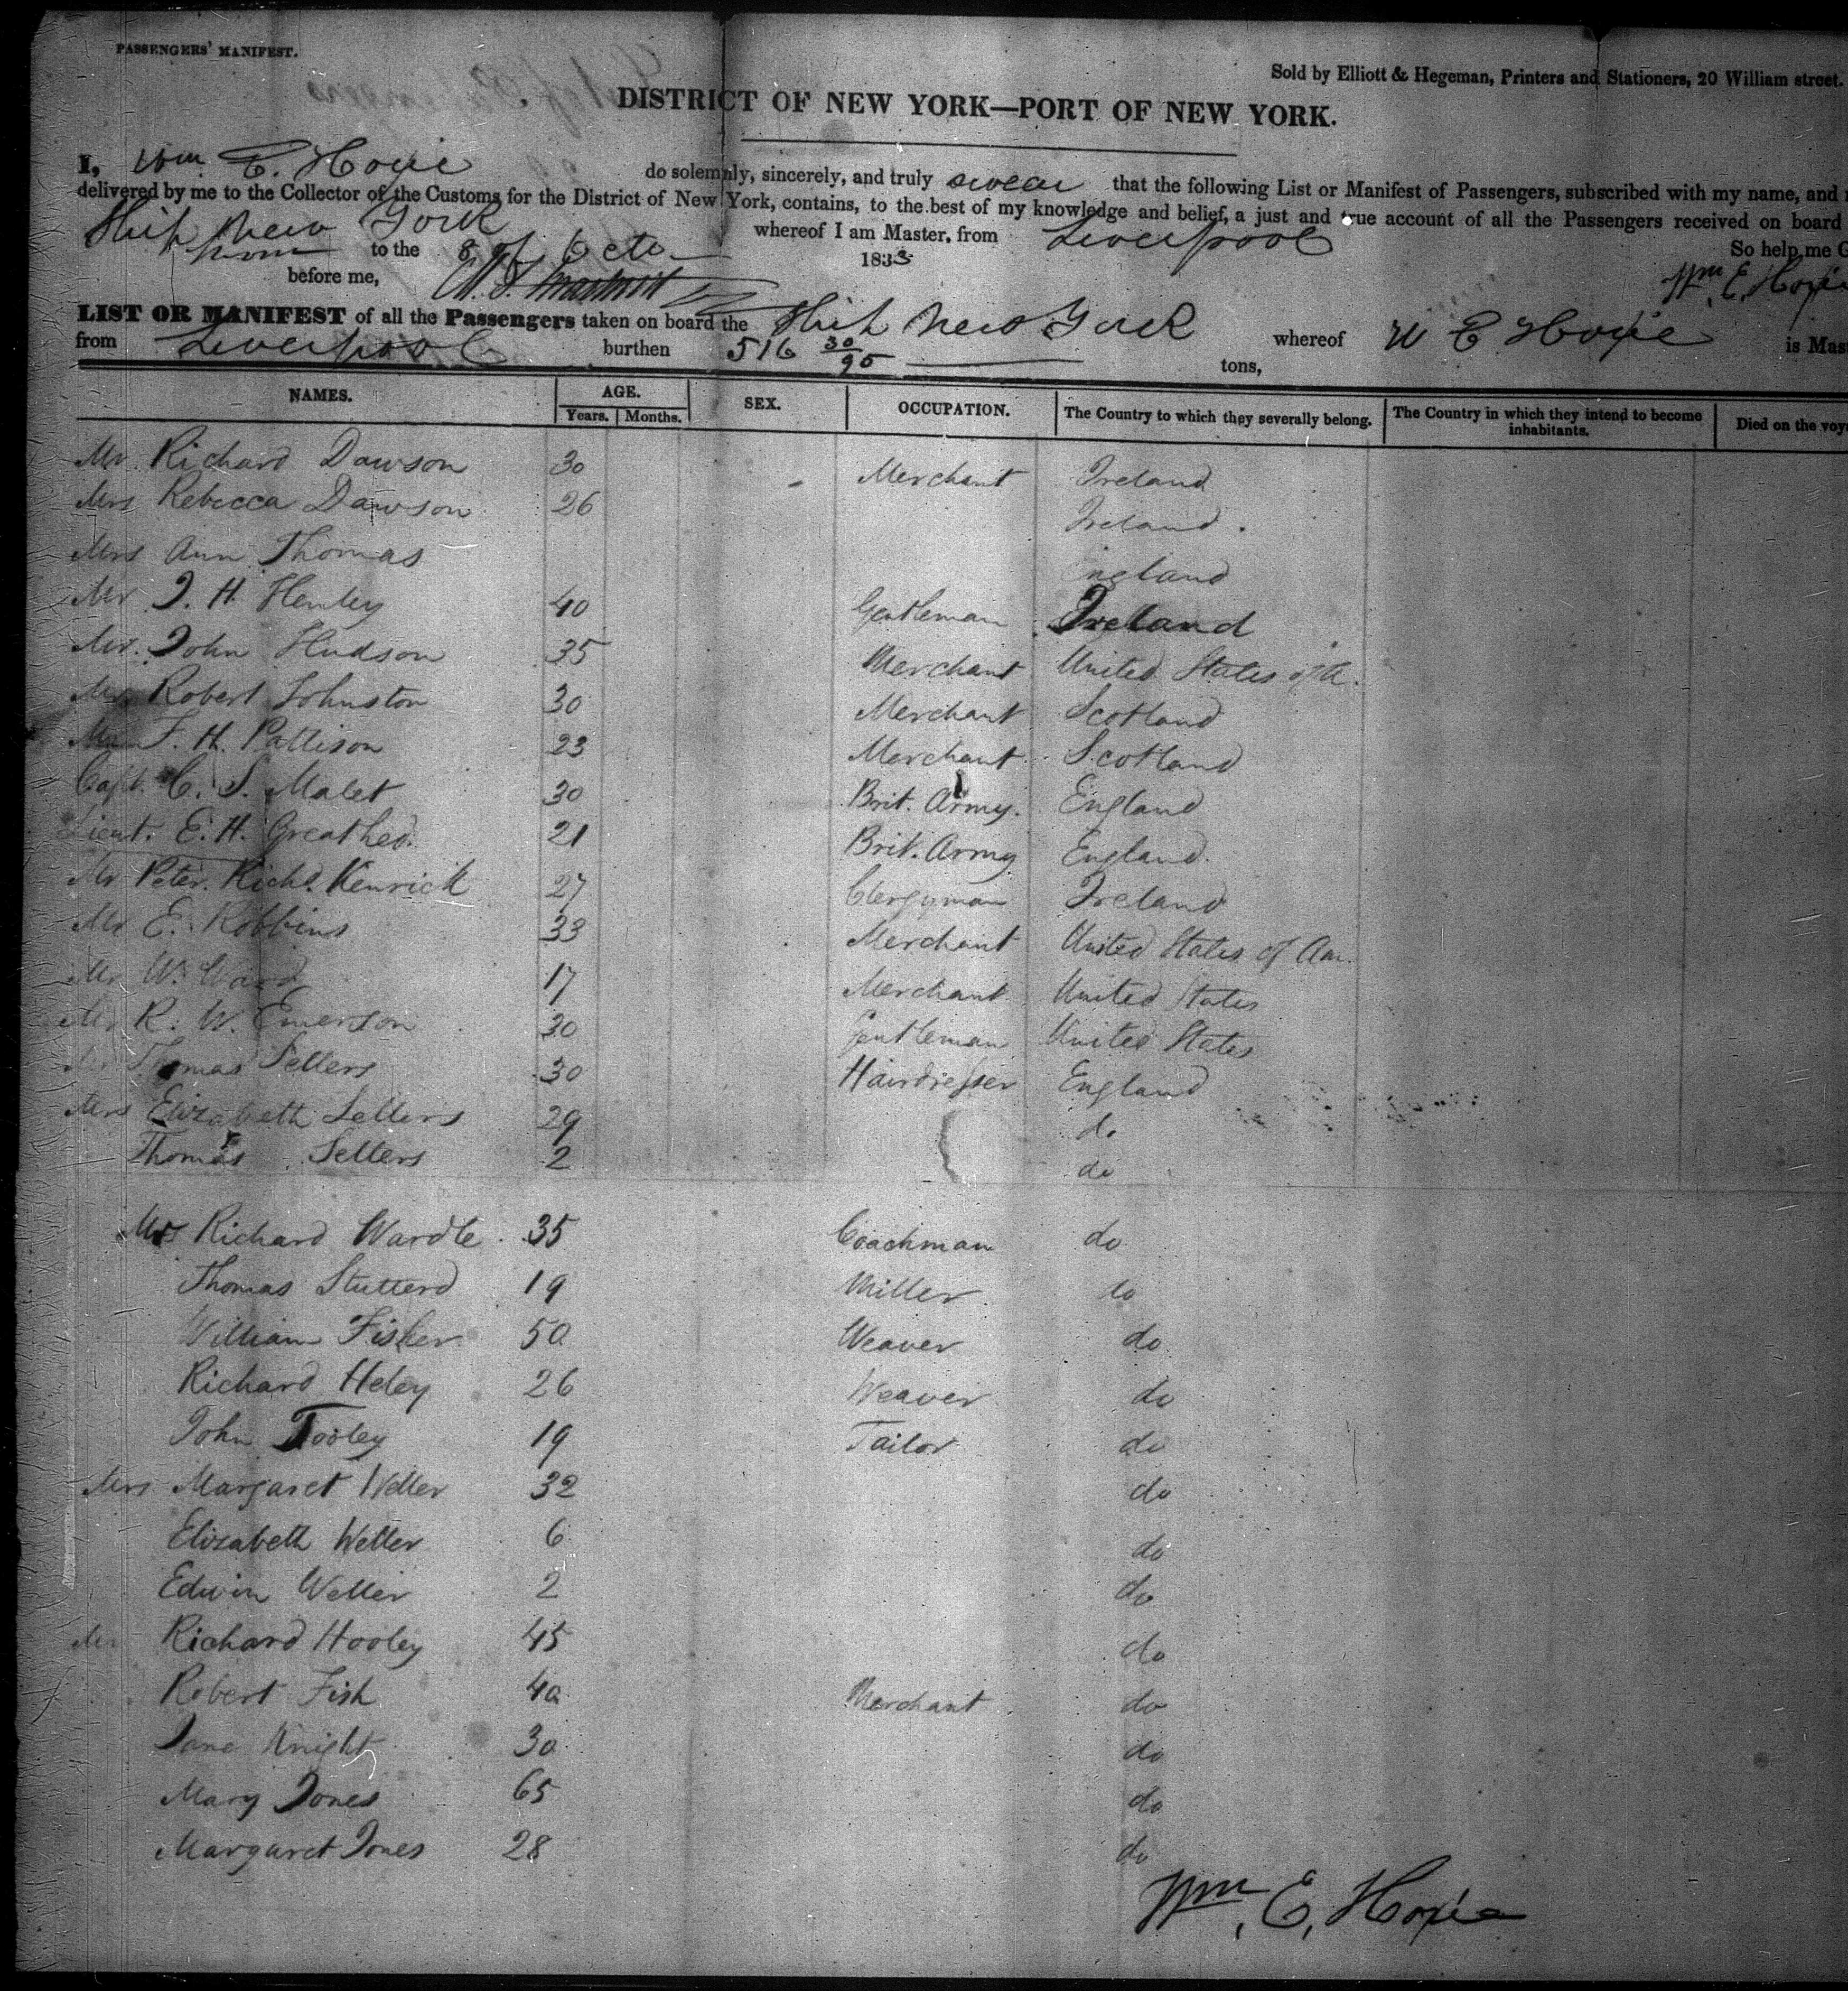 PASSENGERS' MANIFEST.
Sold by Elliott & Hegeman, Printers and Stationers, 20 William street.
DISTRICT OF NEW YORK—PORT OF NEW YORK.
I, Wm. E. Hoxie do solemnly, sincerely, and truly swear that the following List or Manifest of Passengers, subscribed with my name, and
delivered by me to the Collector of the Customs for the District of New York, contains, to the best of my knowledge and belief, a just and true account of all the Passengers received on board
Ship New York whereof I am Master, from Liverpool
to the 8 of Octo 1833 So help me G
before me, Wm. E. Hoxie
LIST OR MANIFEST of all the Passengers taken on board the Ship New York whereof W E Hoxie is Mas
from Liverpool burthen 516 30/95 tons,
NAMES. AGE. Years. Months. SEX. OCCUPATION. The Country to which they severally belong. The Country in which they intend to become inhabitants. Died on the voy
Mr. Richard Dawson 30 Merchant Ireland
Mrs Rebecca Dawson 26 Ireland.
Mrs Ann Thomas England
Mr J. H. Henley 40 Gentleman Ireland
Mr. John Hudson 35 Merchant United States of A.
Mr Robert Johnston 30 Merchant Scotland
Mr F. H. Pattison 23 Merchant Scotland
Capt. C. S. Malet 30 Brit. Army. England
Lieut. E. H. Greathed. 21 Brit. Army England.
Mr Peter Richd. Kenrick 27 Clergyman Ireland
Mr E. Robbins 33 Merchant United States of Am.
Mr W. Ward 17 Merchant United States
Mr R. W. Emerson 30 Gentleman United States
Mr Thomas Sellers 30 Hairdresser England
Mrs Elizabeth Sellers 29 do
Thomas Sellers 2 do
Mrs Richard Wardle 35 Coachman do
Thomas Stutterd 19 Miller do
William Fisher 50 Weaver do
Richard Heley 26 Weaver do
John Tooley 19 Tailor do
Mrs Margaret Weller 32 do
Elizabeth Weller 6 do
Edwin Weller 2 do
Mr Richard Hooley 45 do
Robert Fish 40 Merchant do
Jane Knight 30 do
Mary Jones 65 do
Margaret Jones 28 do
Wm. E. Hoxie